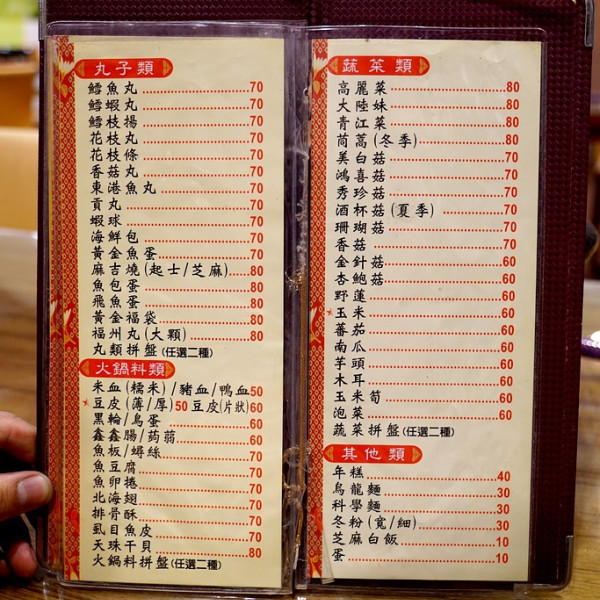 丸子類
鱈魚丸 70
鱈蝦丸 70
鱈枝揚 70
花枝丸 70
花枝條 70
香菇丸 70
東港魚丸 70
貢丸 70
蝦球 70
海鮮包 70
黃金魚蛋 70
麻吉燒(起士/芝麻) 80
魚包蛋 80
飛魚蛋 80
黃金福袋 80
福州丸(大顆) 80
丸類拼盤(任選二種)
火鍋料類
米血(糯米)/豬血/鴨血50
豆皮(薄/厚)50 豆皮(片狀)60
黑輪/鳥蛋 60
鑫鑫腸/蒟蒻 60
魚板/蟳絲 70
魚豆腐 70
魚卵捲 70
北海翅 70
排骨酥 70
虱目魚皮 70
天珠干貝 80
火鍋料拼盤(任選二種)
蔬菜類
高麗菜 80
大陸妹 80
青江菜 80
茼蒿(冬季) 80
美白菇 70
鴻喜菇 70
秀珍菇 70
酒杯菇(夏季) 70
珊瑚菇 70
香菇 70
金針菇 60
杏鮑菇 60
野蓮 60
玉米 60
蕃茄 60
南瓜 60
芋頭 60
木耳 60
玉米筍 60
泡菜 60
蔬菜拼盤(任選二種)
其他類
年糕 40
烏龍麵 30
科學麵 30
冬粉(寬/細) 30
芝麻白飯 10
蛋 10